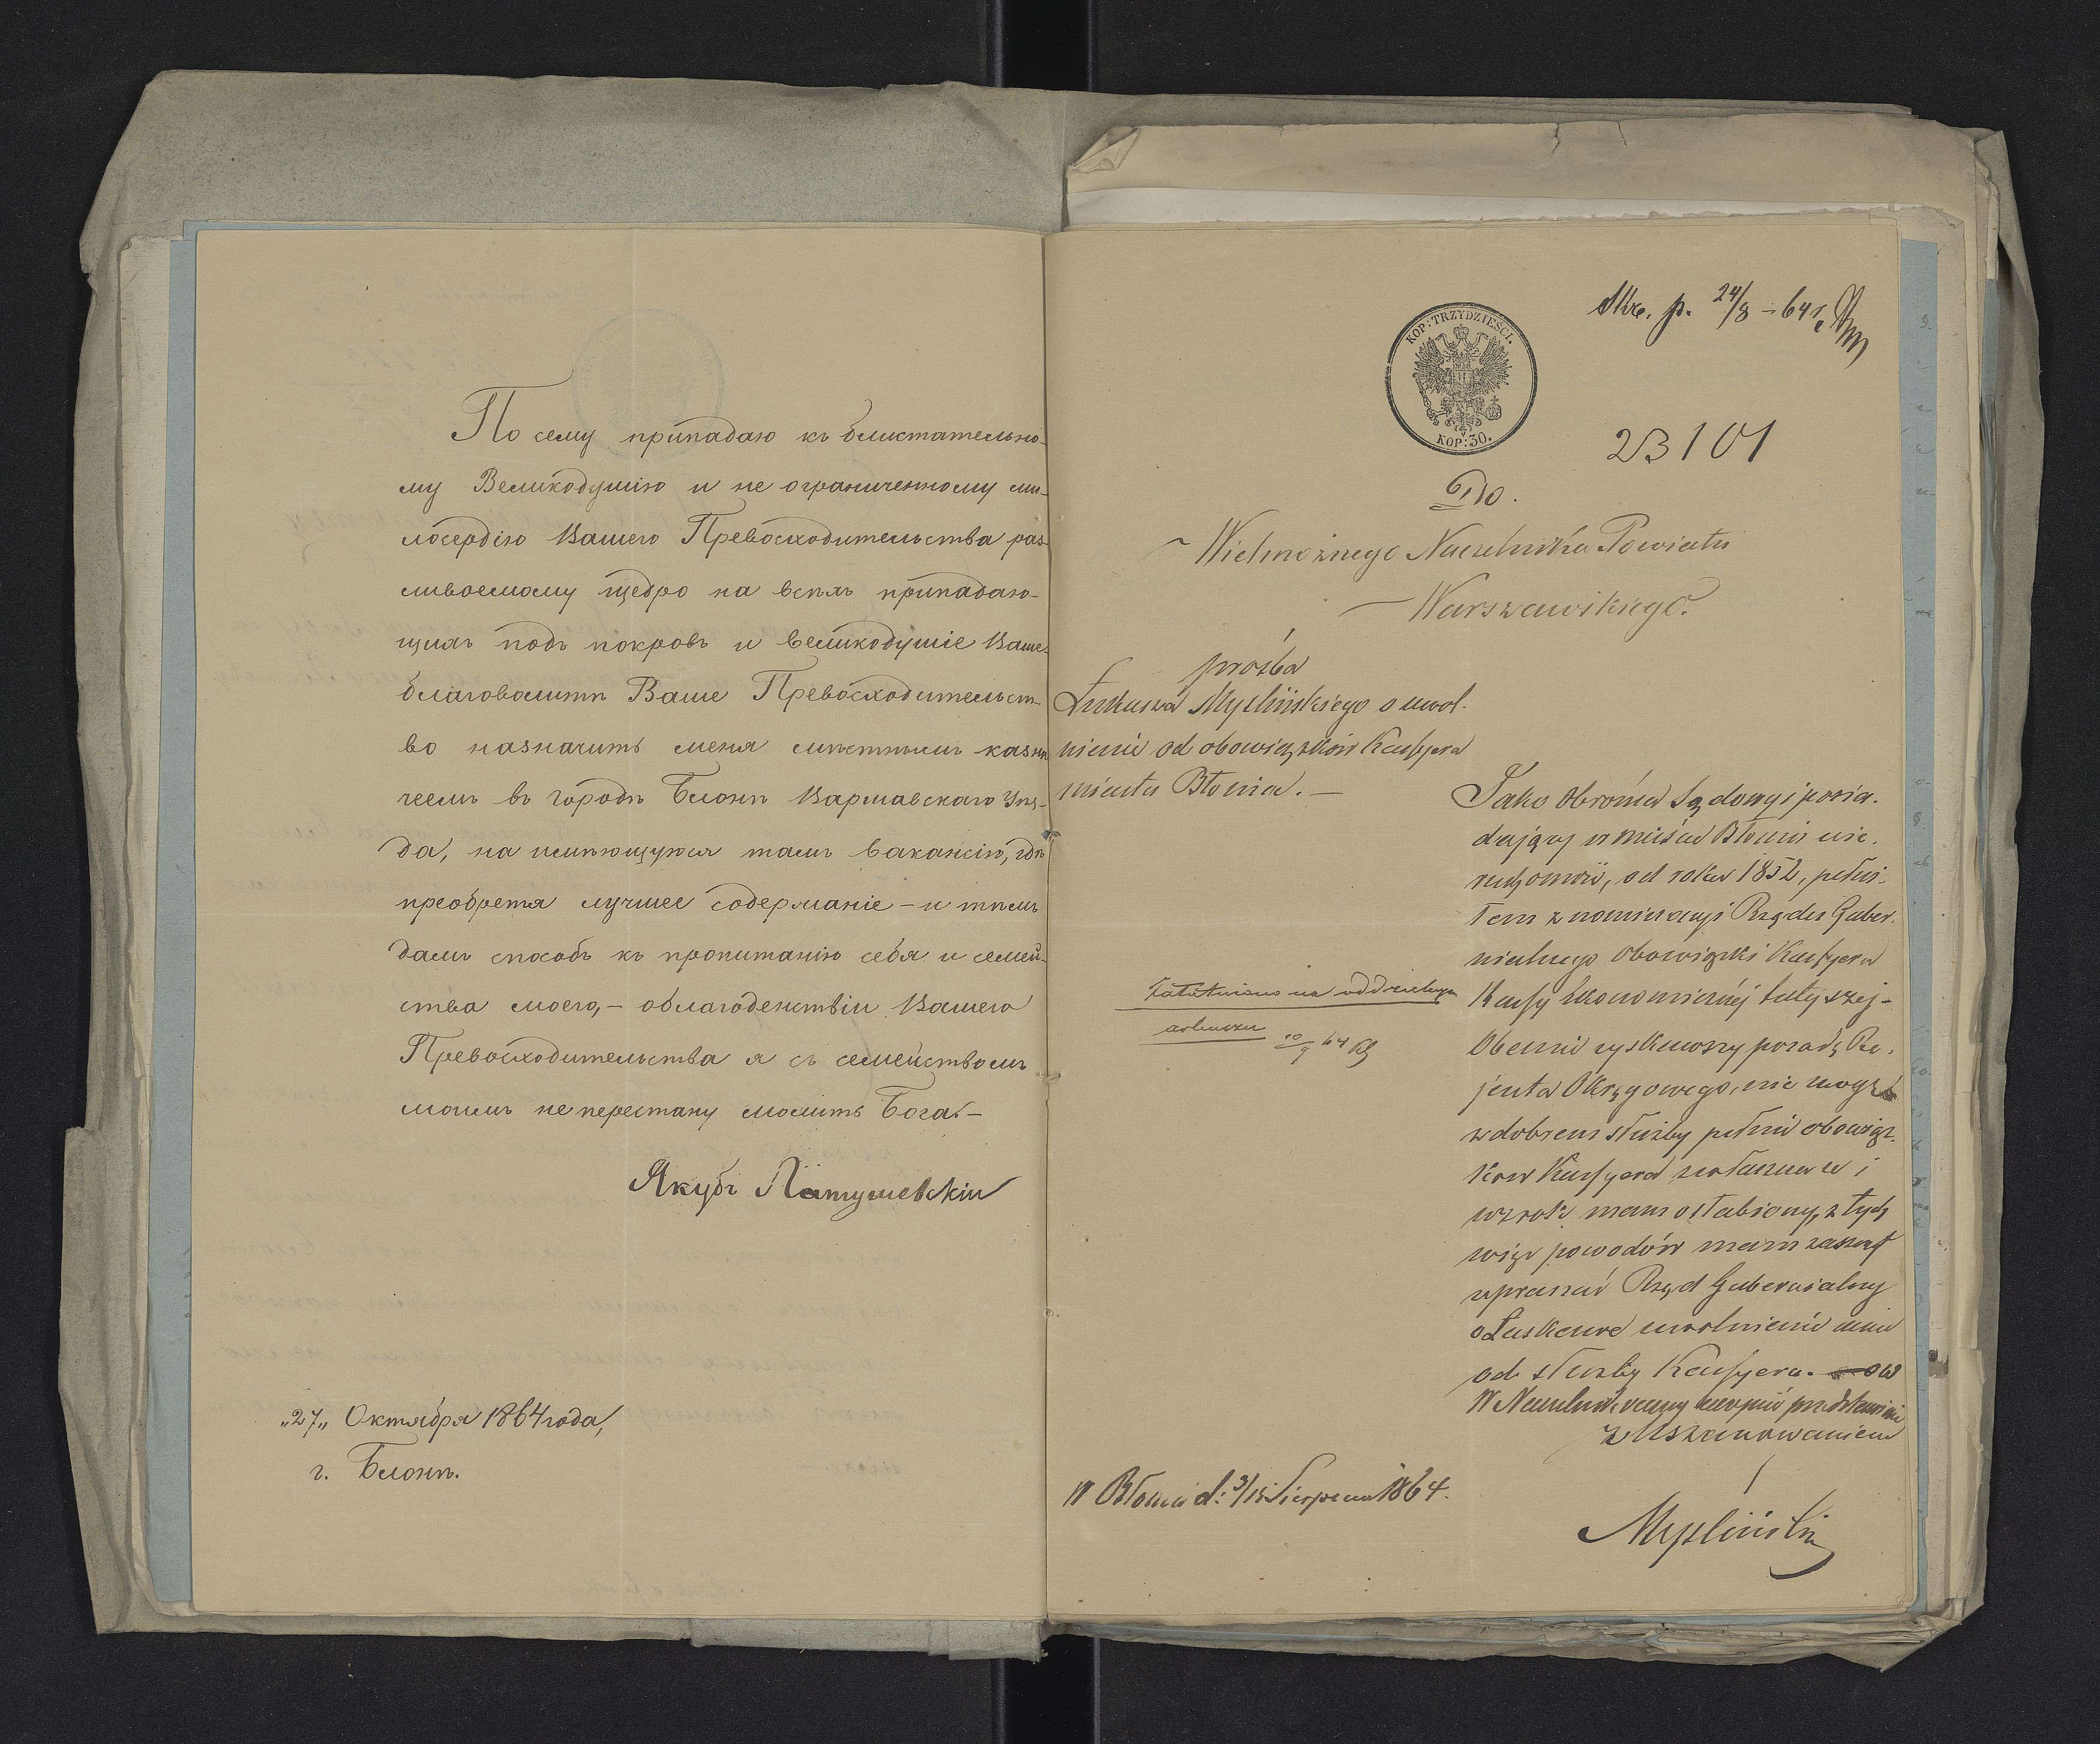 По сему припадаю къ блистательно-
му Великодушію и не ограниченному ми-
лосердію Вашего Превосходительства раз-
ливаемому щедро на всѣхъ припадаю-
щихъ подъ покровъ и великодушіе Ваше
благоволите Ваше Превосходительст-
во назначить меня мѣстнымъ казна
чеемъ въ городѣ Блонѣ Варшавскаго Уѣз-
да, на имѣющуюся тамъ вакансію, гдѣ
преобретя лучшее содержаніе – и тѣмъ
дамъ способъ къ пропитанію себя и семей-
ства моего, – облагоденствіи Вашего
Превосходительства я съ семействомъ
моимъ неперестану молить Бога. –
Якубъ Лятушевскій
„27„ Октября 1864 года,
г. Блонѣ.
24/8 – 64 r.
KOP: TRZYDZIEŚCI.
KOP: 30.
23101
Do.
Wielmożnego Naczelnika Powiatu
Warszawskiego.
prośba
Łukasza Myślińskiego o uwol-
nienie od obowiązków Kassyera
miasta Błonia. –
Jako Obrońca Sądowy i posia-
dający w mieście Błoniu nie-
ruchomość, od roku 1852, pełni-
łem z nominacyi Rządu Guber-
nialnego Obowiązki Kassyera
Kassy Ekonomicznej tutejszej –
Obecnie zyskawszy posadę Re-
jenta Okręgowego, nie mogę
z dobrem służby pełnić obowiąz-
ków Kassyera zwłaszcza że i
wzrok mam osłabiony, z tych
więc powodów mam zaszczyt
upraszać Rząd Gubernialny
o Łaskawe uwolnienie mnie
od służby Kassyera. – o co
W Naczelnik raczy przedstawienie
z Uszanowaniem
Załatwiono na oddzielnym
arkuszu 10/9 64
W Błoniu d: 3/15 Sierpnia 1864.
Myśliński